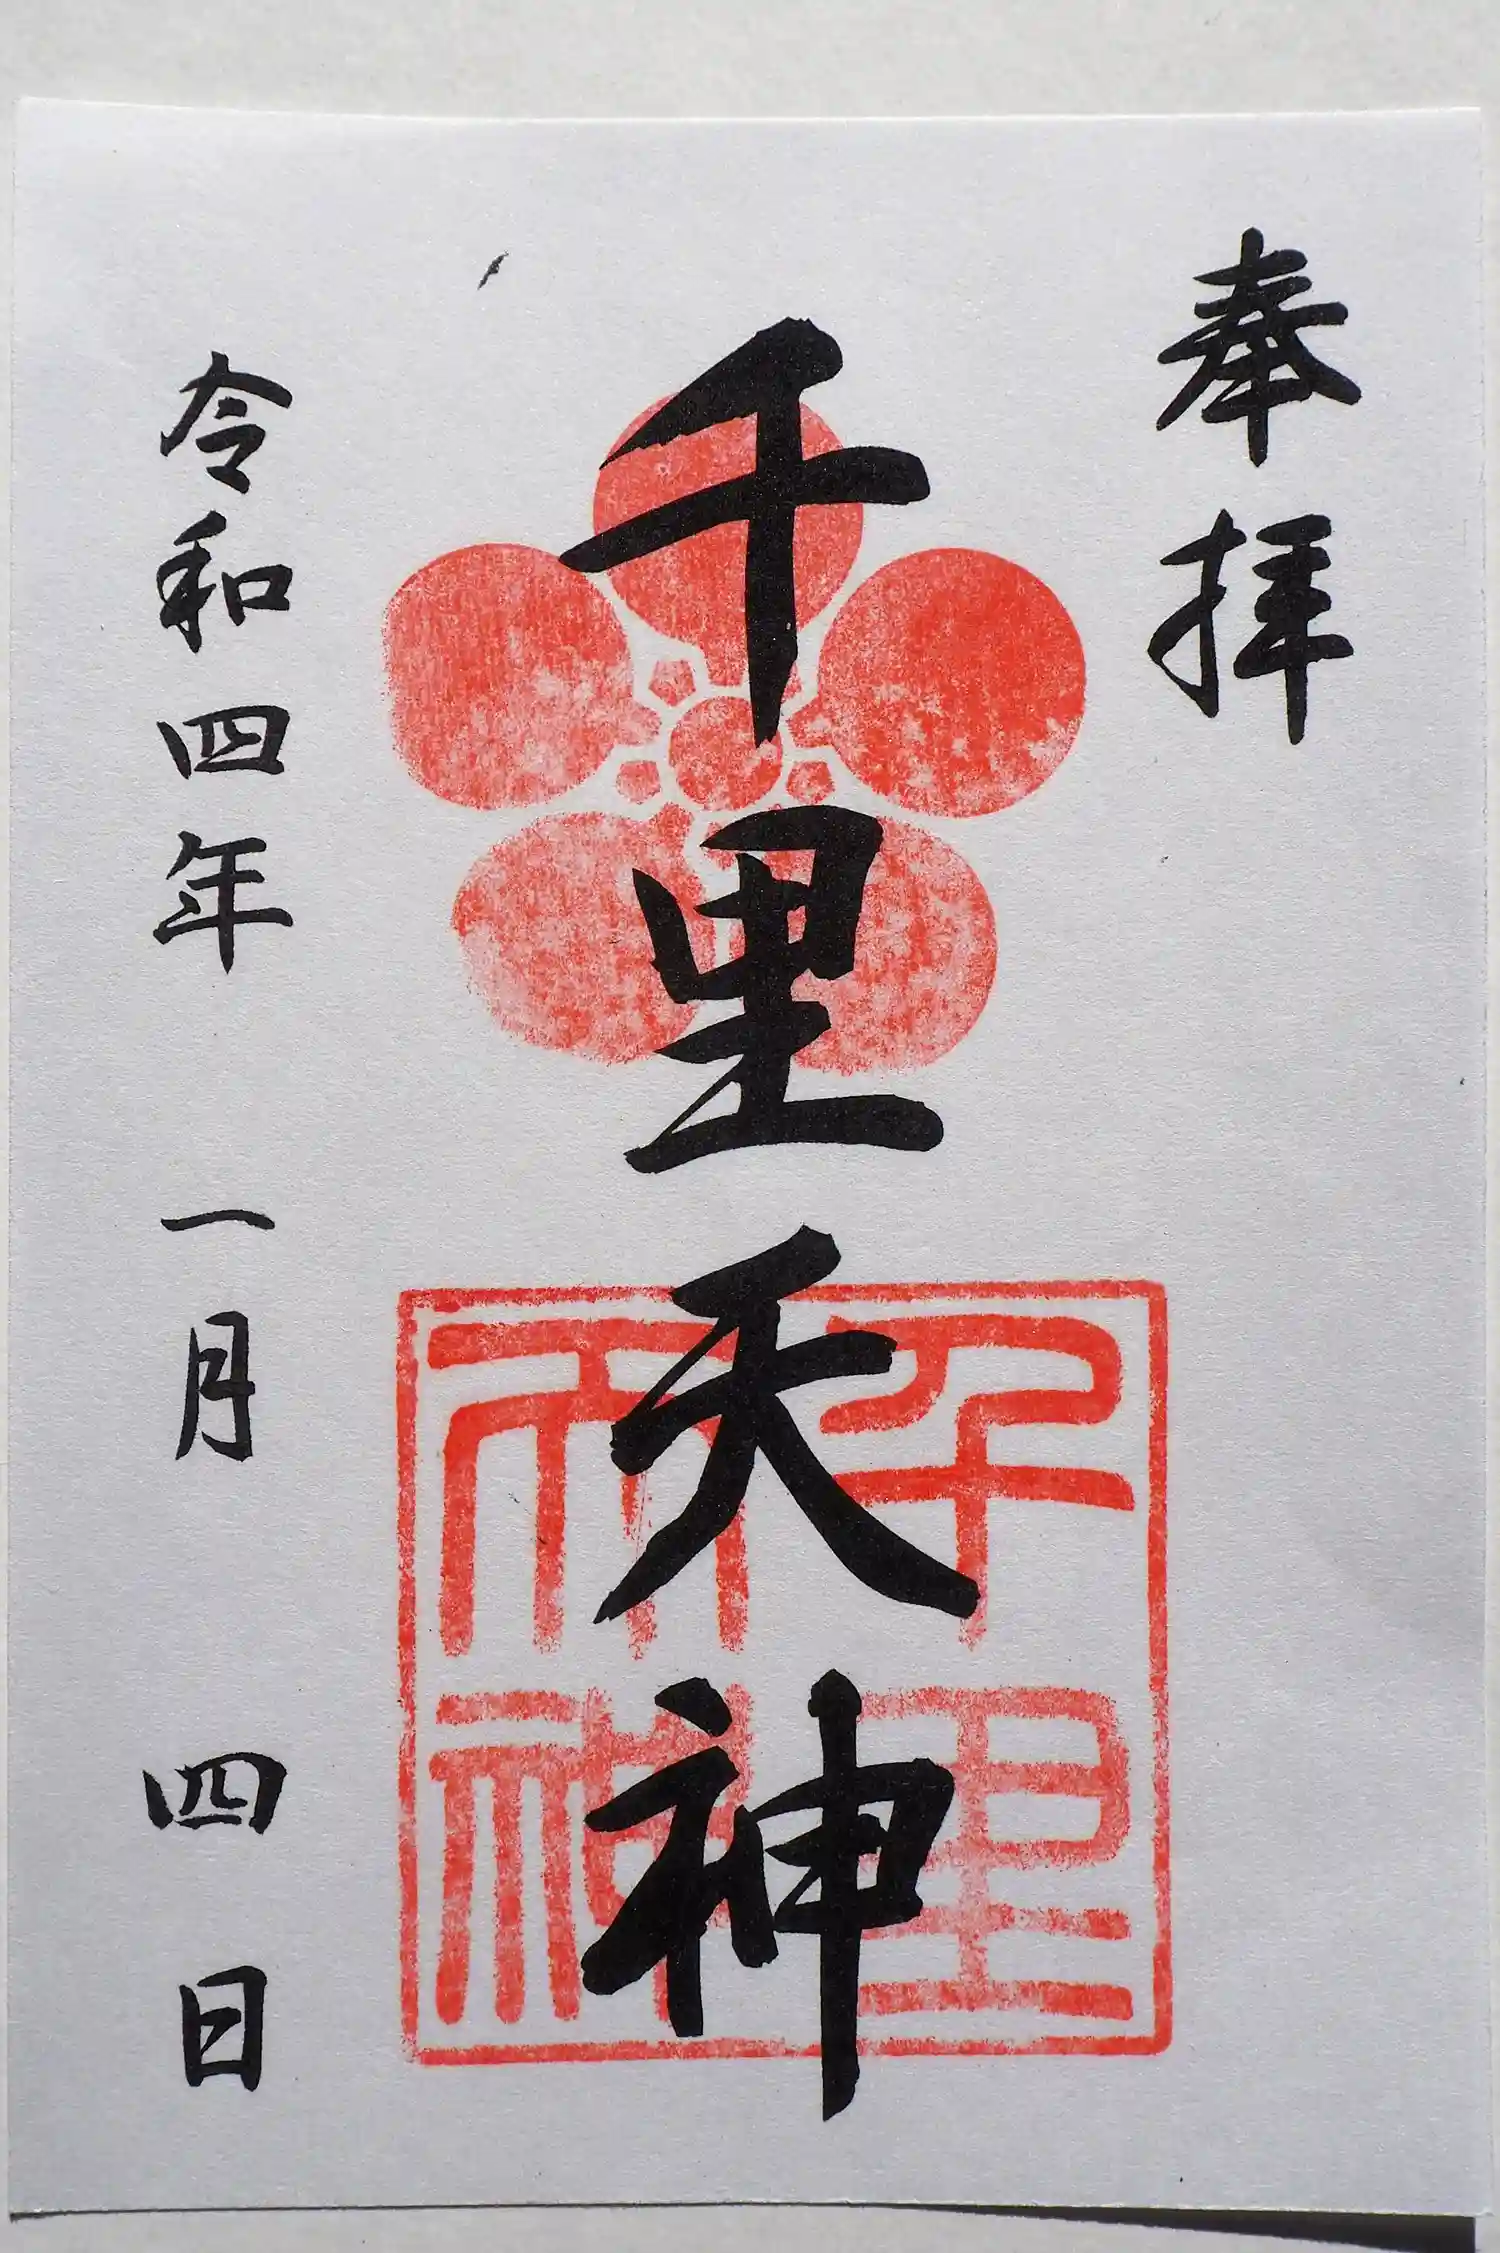 奉拝
千里天神
千里天神
令和四年一月四日